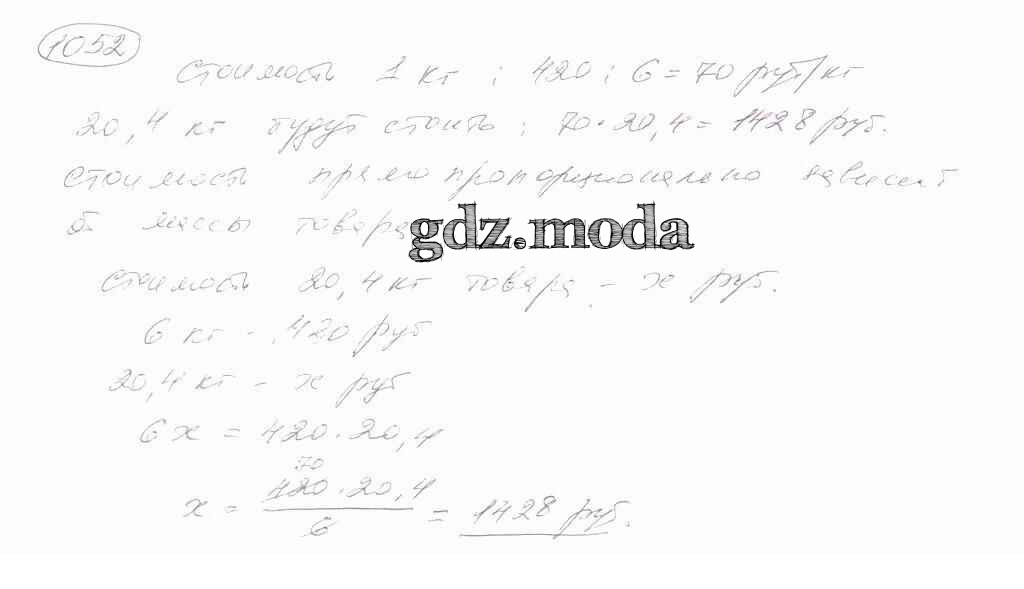 1052
стоимость 1 кг : 420 : 6 = 70 руб/кг
20,4 кг будут стоить : 70 · 20,4 = 1428 руб.
стоимость прямо пропорционально зависит
от массы товара
gdz.moda
стоимость 20,4 кг товара - х руб.
6 кг - 420 руб
20,4 кг - х руб
6х = 420 · 20,4
70
х = 420 · 20,4 / 6 = 1428 руб.